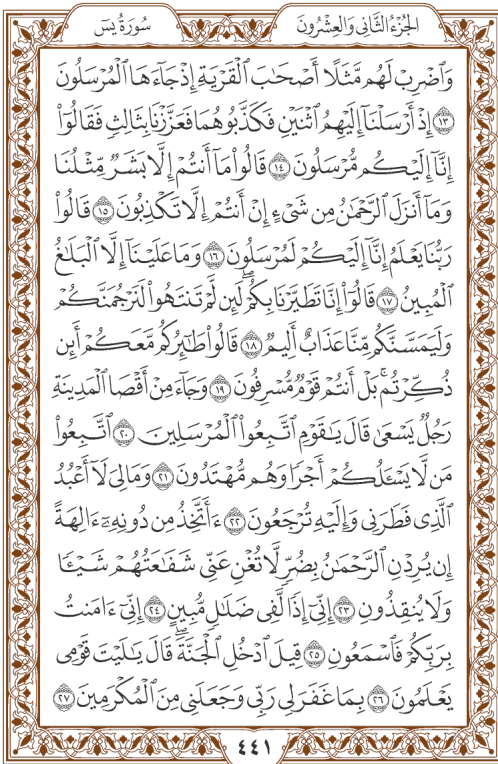 الجُزْءُ الثَّانِي وَالعِشْرُونَ
سُورَةُ يسٓ
وَٱضْرِبْ لَهُم مَّثَلًا أَصْحَٰبَ ٱلْقَرْيَةِ إِذْ جَآءَهَا ٱلْمُرْسَلُونَ
١٣ إِذْ أَرْسَلْنَآ إِلَيْهِمُ ٱثْنَيْنِ فَكَذَّبُوهُمَا فَعَزَّزْنَا بِثَالِثٍ فَقَالُوٓا۟
إِنَّآ إِلَيْكُم مُّرْسَلُونَ ١٤ قَالُوا۟ مَآ أَنتُمْ إِلَّا بَشَرٌ مِّثْلُنَا
وَمَآ أَنزَلَ ٱلرَّحْمَٰنُ مِن شَىْءٍ إِنْ أَنتُمْ إِلَّا تَكْذِبُونَ ١٥ قَالُوا۟
رَبُّنَا يَعْلَمُ إِنَّآ إِلَيْكُمْ لَمُرْسَلُونَ ١٦ وَمَا عَلَيْنَآ إِلَّا ٱلْبَلَٰغُ
ٱلْمُبِينُ ١٧ قَالُوٓا۟ إِنَّا تَطَيَّرْنَا بِكُمْ ۖ لَئِن لَّمْ تَنتَهُوا۟ لَنَرْجُمَنَّكُمْ
وَلَيَمَسَّنَّكُم مِّنَّا عَذَابٌ أَلِيمٌ ١٨ قَالُوا۟ طَٰٓئِرُكُم مَّعَكُمْ ۚ أَئِن
ذُكِّرْتُم ۚ بَلْ أَنتُمْ قَوْمٌ مُّسْرِفُونَ ١٩ وَجَآءَ مِنْ أَقْصَا ٱلْمَدِينَةِ
رَجُلٌ يَسْعَىٰ قَالَ يَٰقَوْمِ ٱتَّبِعُوا۟ ٱلْمُرْسَلِينَ ٢٠ ٱتَّبِعُوا۟
مَن لَّا يَسْـَٔلُكُمْ أَجْرًا وَهُم مُّهْتَدُونَ ٢١ وَمَا لِىَ لَآ أَعْبُدُ
ٱلَّذِى فَطَرَنِى وَإِلَيْهِ تُرْجَعُونَ ٢٢ ءَأَتَّخِذُ مِن دُونِهِۦٓ ءَالِهَةً
إِن يُرِدْنِ ٱلرَّحْمَٰنُ بِضُرٍّ لَّا تُغْنِ عَنِّى شَفَٰعَتُهُمْ شَيْـًٔا
وَلَا يُنقِذُونِ ٢٣ إِنِّىٓ إِذًا لَّفِى ضَلَٰلٍ مُّبِينٍ ٢٤ إِنِّىٓ ءَامَنتُ
بِرَبِّكُمْ فَٱسْمَعُونِ ٢٥ قِيلَ ٱدْخُلِ ٱلْجَنَّةَ ۖ قَالَ يَٰلَيْتَ قَوْمِى
يَعْلَمُونَ ٢٦ بِمَا غَفَرَ لِى رَبِّى وَجَعَلَنِى مِنَ ٱلْمُكْرَمِينَ ٢٧
٤٤١